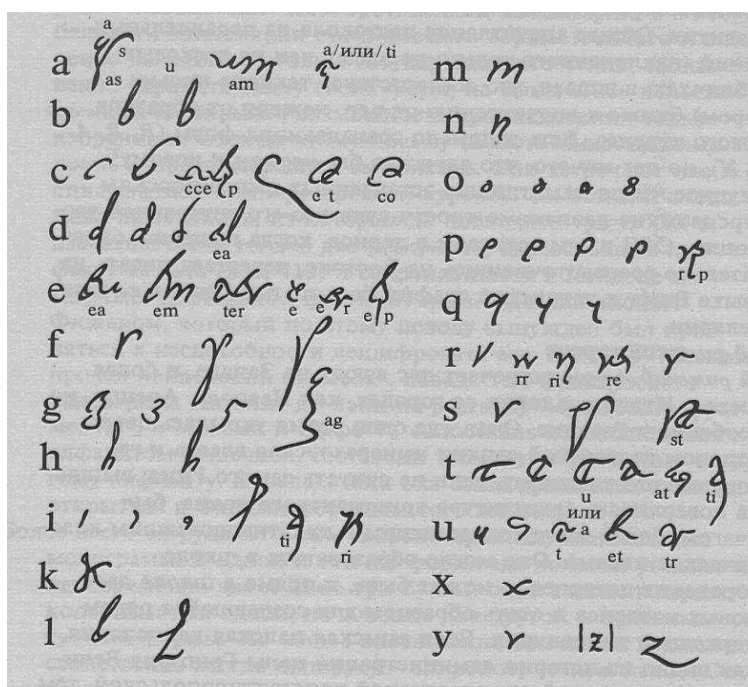 a a s as u am a/или/ti
b
c cce p et co
d ea
e ea em ter e e r e p
f
g ag
h
i ti ri
k
l
m
n
o
p r p
q
r rr ri re
s st
t u at ti
u t или a et tr
x
y |z|